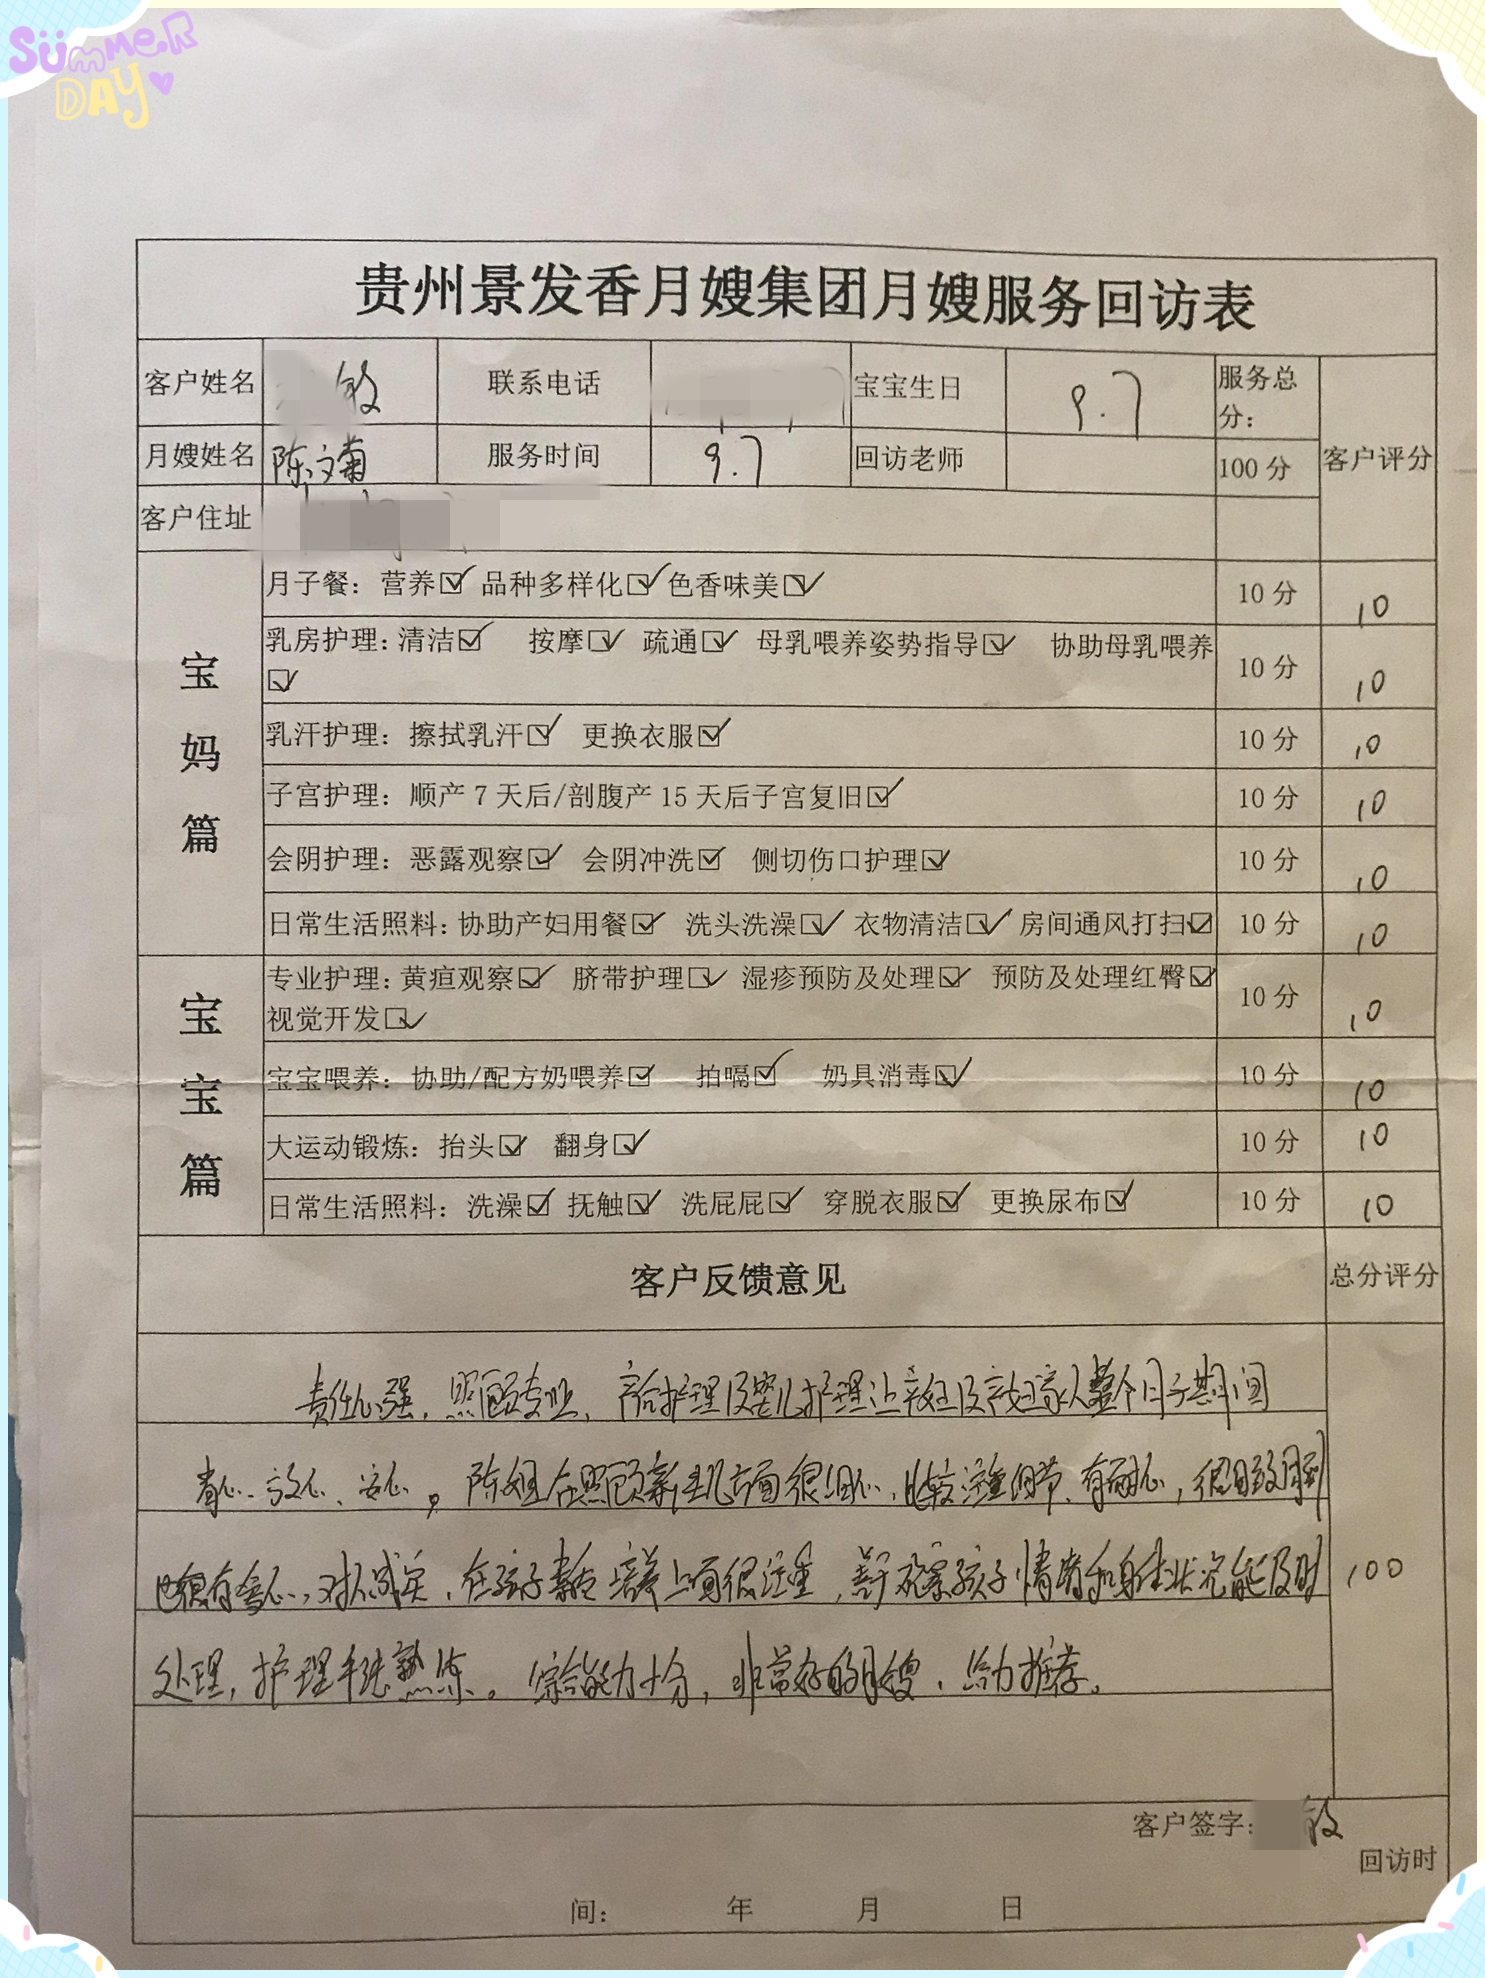 SUMMER
DAY
贵州景发香月嫂集团月嫂服务回访表
客户姓名 敏 联系电话 宝宝生日 9.7 服务总分: 客户评分
月嫂姓名 陈文菊 服务时间 9.7 回访老师 100 分
客户住址
宝妈篇
月子餐：营养☑ 品种多样化☑ 色香味美☑ 10 分 10
乳房护理：清洁☑ 按摩☑ 疏通☑ 母乳喂养姿势指导☑ 协助母乳喂养
☑ 10 分 10
乳汗护理：擦拭乳汗☑ 更换衣服☑ 10 分 10
子宫护理：顺产 7 天后/剖腹产 15 天后子宫复旧☑ 10 分 10
会阴护理：恶露观察☑ 会阴冲洗☑ 侧切伤口护理☑ 10 分 10
日常生活照料：协助产妇用餐☑ 洗头洗澡☑ 衣物清洁☑ 房间通风打扫☑ 10 分 10
宝宝篇
专业护理：黄疸观察☑ 脐带护理☑ 湿疹预防及处理☑ 预防及处理红臀☑
视觉开发☑ 10 分 10
宝宝喂养：协助/配方奶喂养☑ 拍嗝☑ 奶具消毒☑ 10 分 10
大运动锻炼：抬头☑ 翻身☑ 10 分 10
日常生活照料：洗澡☑ 抚触☑ 洗屁屁☑ 穿脱衣服☑ 更换尿布☑ 10 分 10
客户反馈意见 总分评分
责任心强，照顾专业、产后护理及婴儿护理让产妇及产妇家人整个月子期间
省心、放心、安心。陈姐在照顾新生儿方面很细心，比较注重细节、有耐心，很细致周到
也很有爱心，对人诚实，在孩子培养上面很注重，善于观察孩子情绪和身体状况能及时
处理，护理手法熟练。综合能力十分，非常好的月嫂，给力推荐。
100
客户签字: 敏
回访时
间： 年 月 日